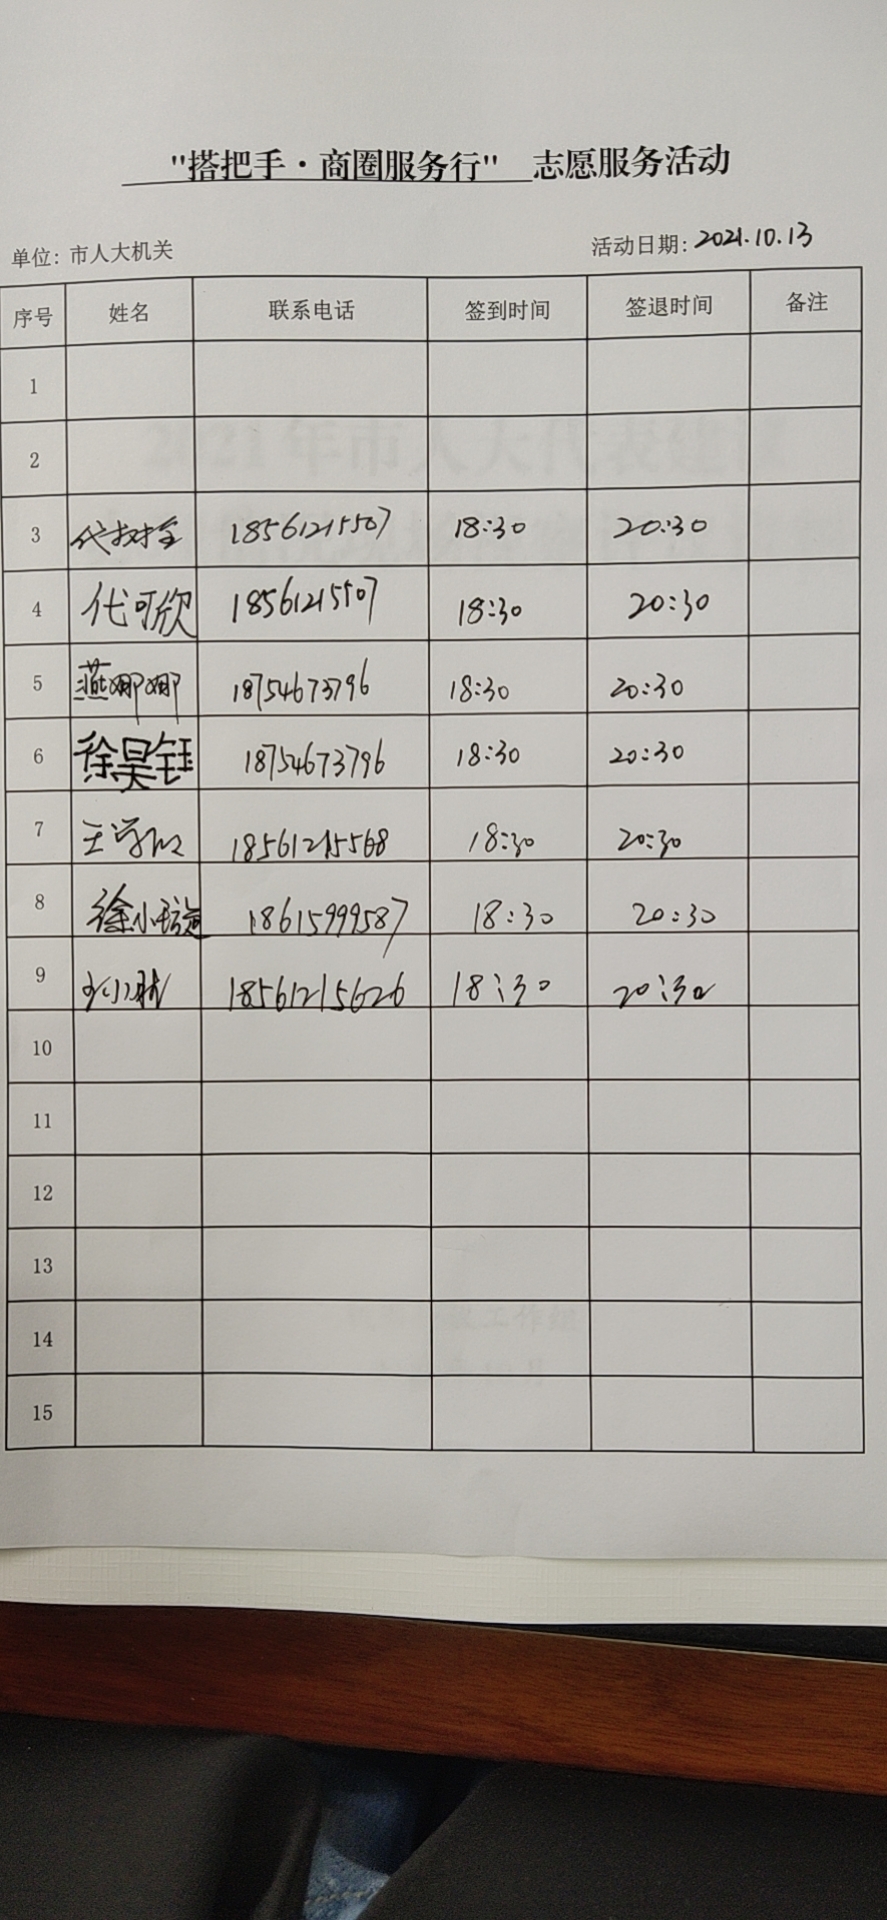 "搭把手·商圈服务行" 志愿服务活动
单位：市人大机关 活动日期：2021.10.13
序号 姓名 联系电话 签到时间 签退时间 备注
1
2
3 代树全 18561215507 18:30 20:30
4 代可欣 18561215507 18:30 20:30
5 燕娜娜 18754673796 18:30 20:30
6 徐昊钰 18754673796 18:30 20:30
7 王 18561215568 18:30 20:30
8 徐小璇 18615999587 18:30 20:30
9 18561215626 18:30 20:30
10
11
12
13
14
15